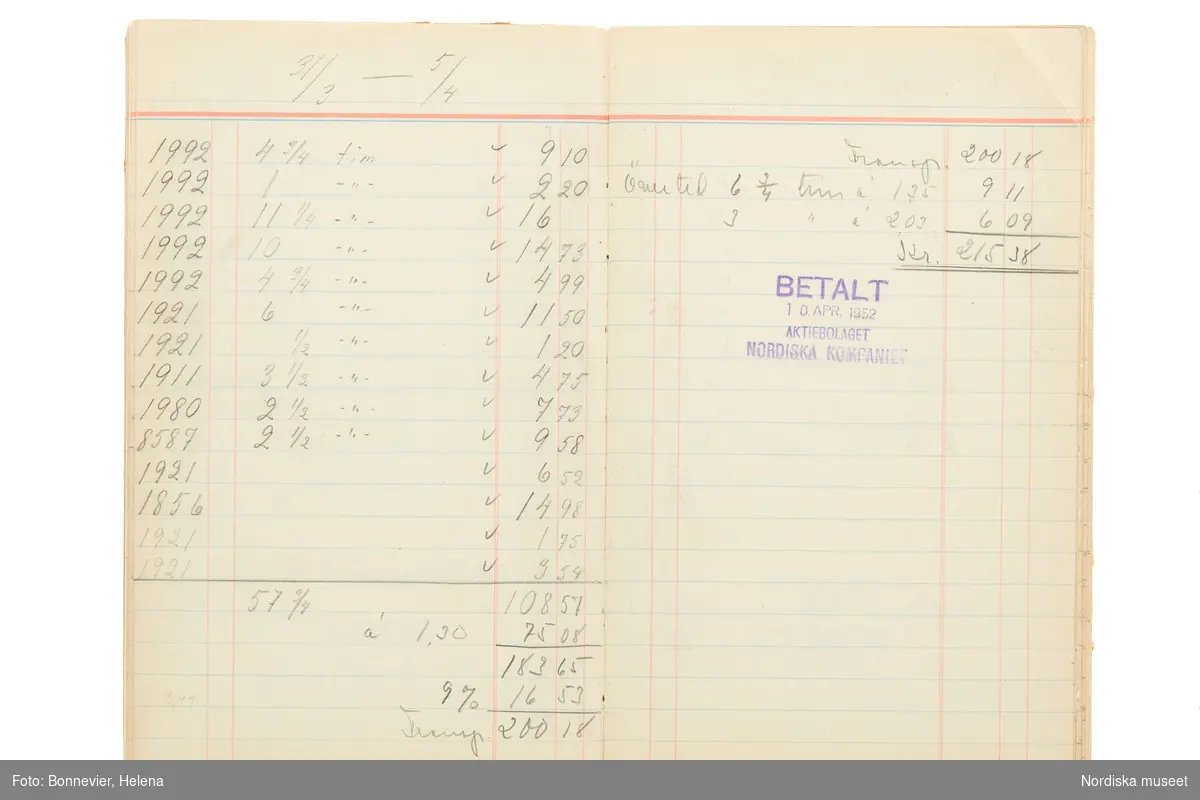 31/3 — 5/4
1992 4 3/4 tim ✓ 9 10
1992 1 -"- ✓ 2 20
1992 11 1/4 -"- ✓ 16
1992 10 -"- ✓ 14 73
1992 4 3/4 -"- ✓ 4 99
1921 6 -"- ✓ 11 50
1921 1/2 -"- ✓ 1 20
1911 3 1/2 -"- ✓ 4 75
1980 2 1/2 -"- ✓ 7 73
8587 2 1/2 -"- ✓ 9 58
1921 ✓ 6 52
1856 ✓ 14 98
1921 ✓ 1 75
1921 ✓ 3 54
57 3/4 108 57
á 1,30 75 08
183 65
9% 16 53
Transp. 200 18
Transp. 200 18
6 3/4 tim á 135 9 11
3 " á 203 6 09
Kr. 215 38
BETALT
10. APR. 1952
AKTIEBOLAGET
NORDISKA KOMPANIET
Foto: Bonnevier, Helena
Nordiska museet